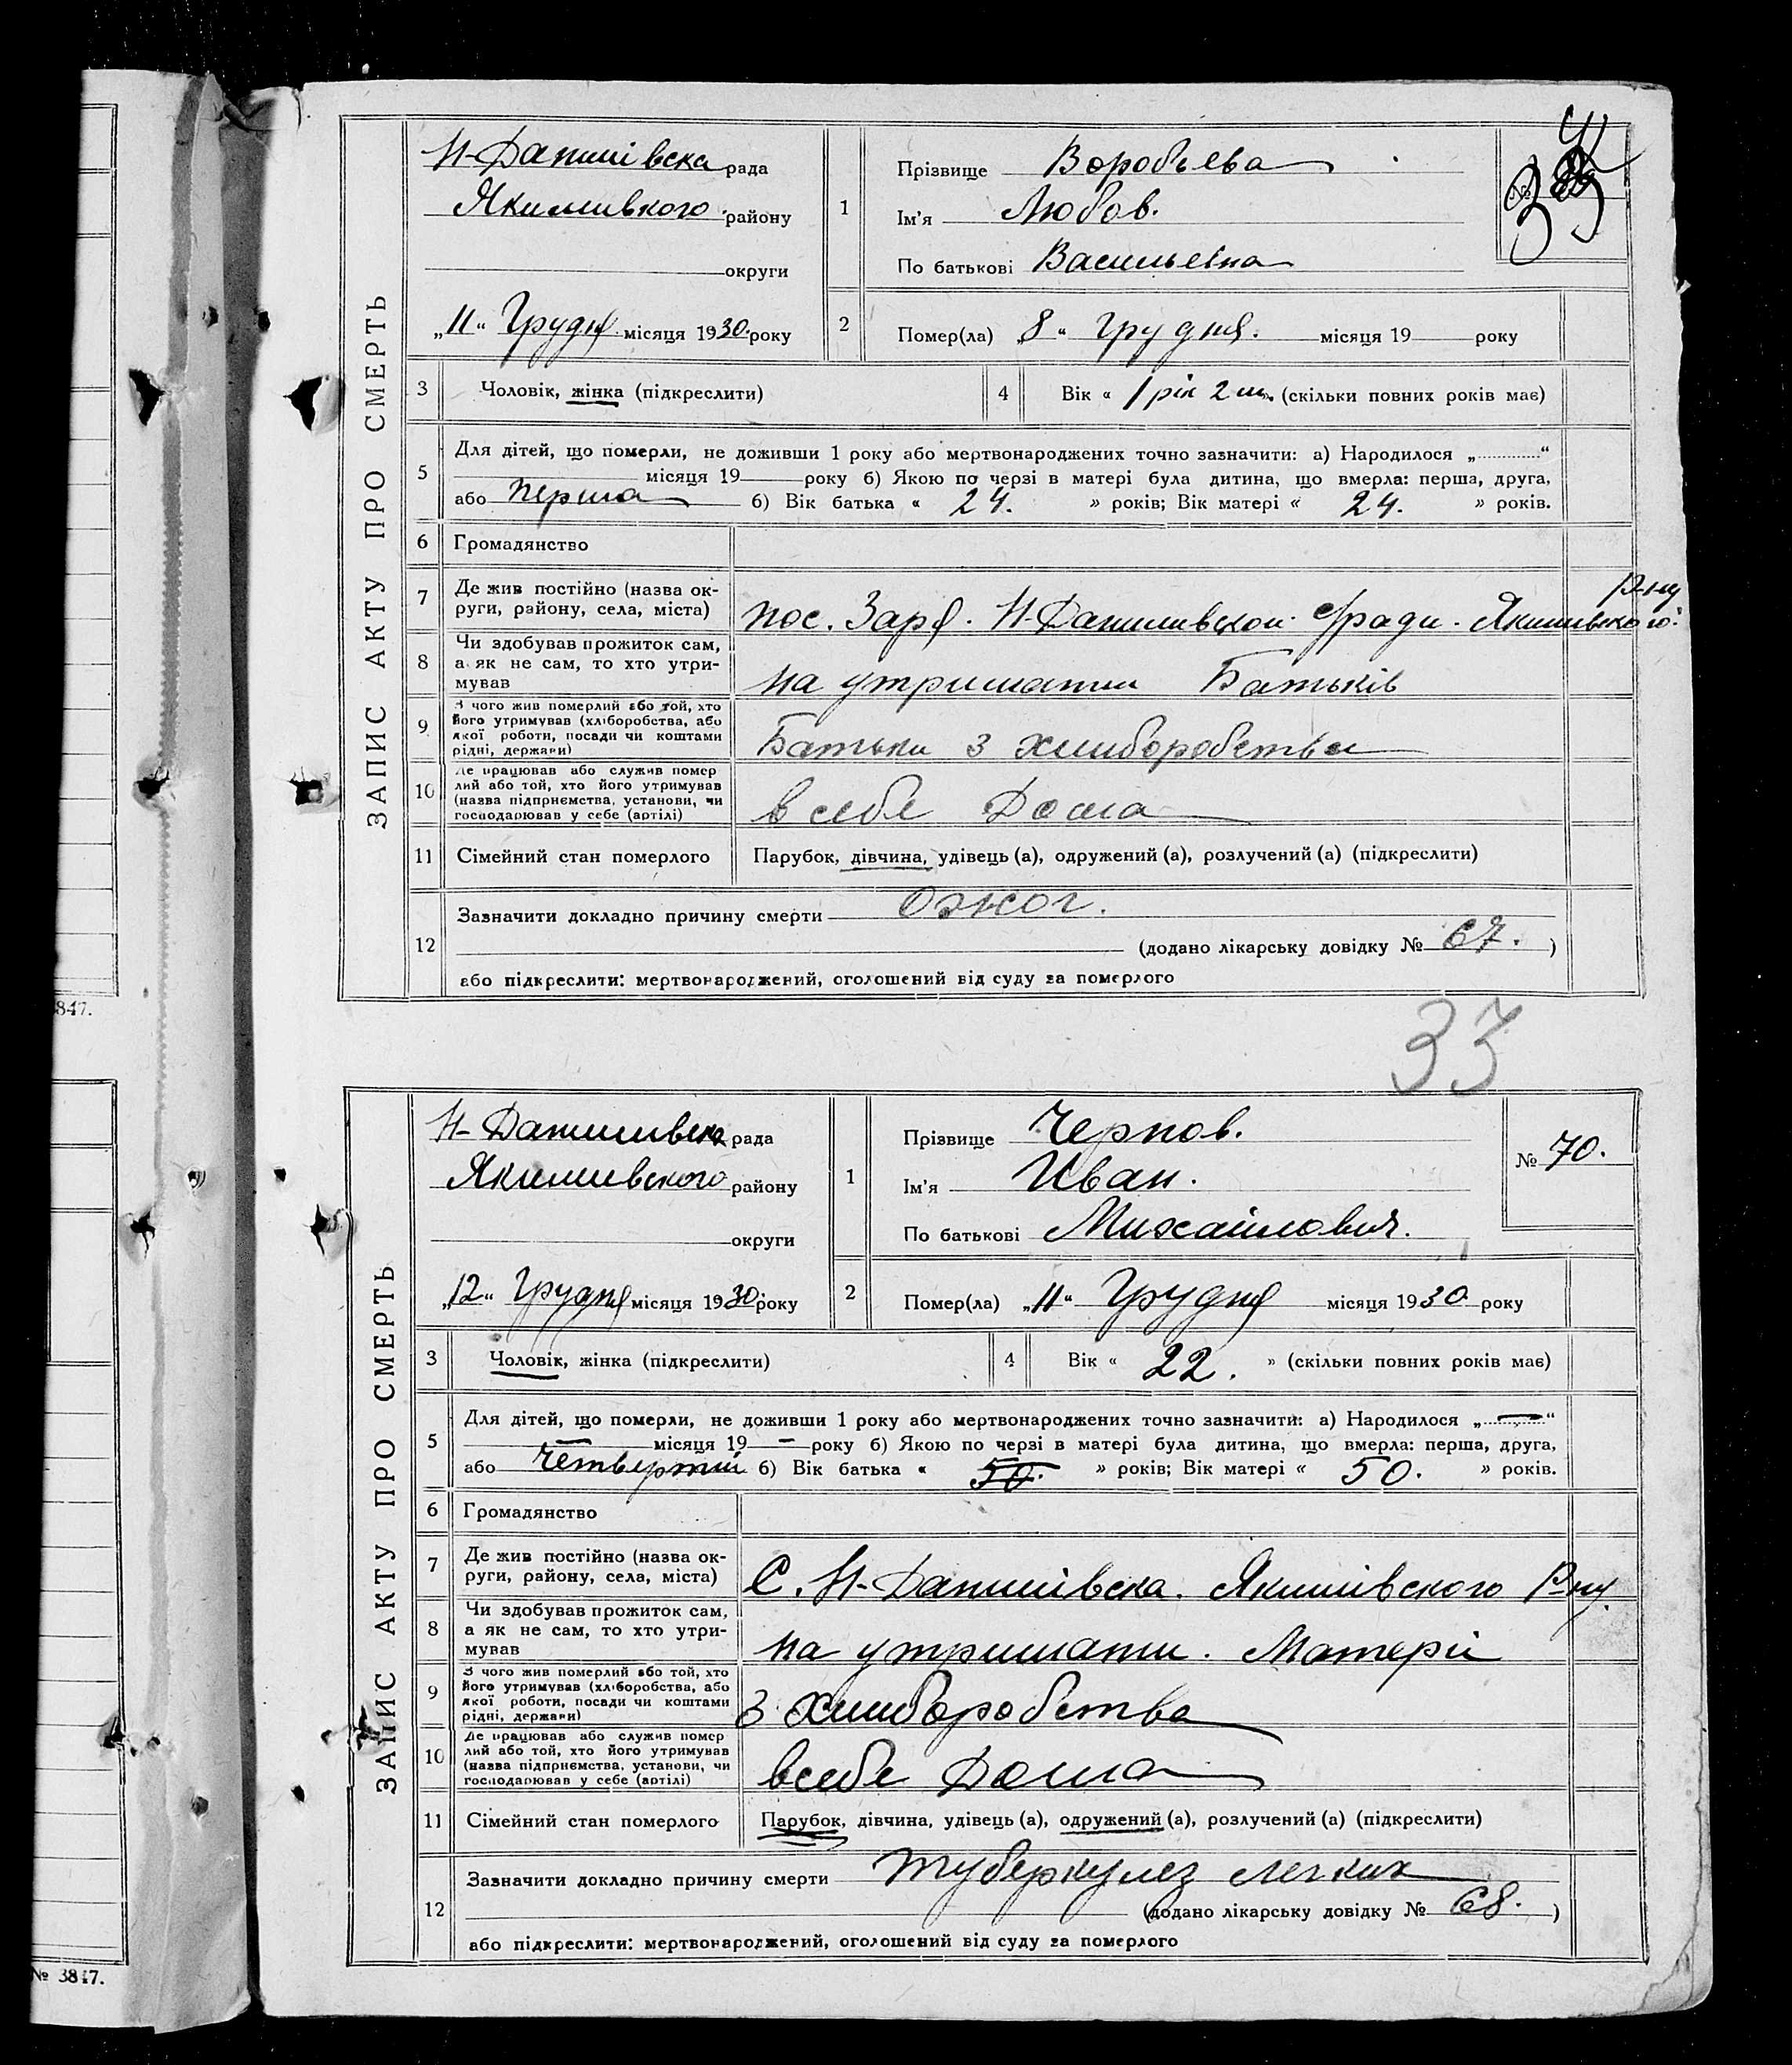 847.
№ 3847.
ЗАПИС АКТУ ПРО СМЕРТЬ
Н-Данилівска рада
Якимивкого району
округи
„11“ Грудня місяця 1930 року
1
Прізвище Воробьева
Ім'я Любов.
По батькові Васильевна
2
Помер(ла) „8“ грудня. місяця 19 року
3
Чоловік, жінка (підкреслити)
4
Вік « 1 рік 2 м. (скільки повних років має)
5
Для дітей, що померли, не доживши 1 року або мертвонароджених точно зазначити: а) Народилося „ “
місяця 19 року б) Якою по черзі в матері була дитина, що вмерла: перша, друга,
або перша б) Вік батька « 24. » років; Вік матері « 24. » років.
6
Громадянство
7
Де жив постійно (назва ок-
руги, району, села, міста)
пос. Н-Даниливской с/ради. Якимивского р-ну
8
Чи здобував прожиток сам,
а як не сам, то хто утри-
мував
на утримати Батьків
9
З чого жив померлий або той, хто
його утримував (хліборобства, або
якої роботи, посади чи коштами
рідні, держави)
Батьки з хлиборобства
10
Де працював або служив помер
лий або той, хто його утримував
(назва підприємства, установи, чи
господарював у себе (артілі)
в себе Дома
11
Сімейний стан померлого
Парубок, дівчина, удівець (а), одружений (а), розлучений (а) (підкреслити)
12
Зазначити докладно причину смерти Ожог.
(додано лікарську довідку № 67. )
або підкреслити: мертвонароджений, оголошений від суду за померлого
33
ЗАПИС АКТУ ПРО СМЕРТЬ
Н-Даниливска рада
Якимивского району
округи
„12“ Грудня місяця 1930 року
1
Прізвище Чернов.
Ім'я Иван.
По батькові Михайлович.
№ 70.
2
Помер(ла) „11“ Грудня місяця 1930 року
3
Чоловік, жінка (підкреслити)
4
Вік « 22. » (скільки повних років має)
5
Для дітей, що померли, не доживши 1 року або мертвонароджених точно зазначити: а) Народилося „—“
— місяця 19 — року б) Якою по черзі в матері була дитина, що вмерла: перша, друга,
або Четвертий б) Вік батька « 50. » років; Вік матері « 50. » років.
6
Громадянство
7
Де жив постійно (назва ок-
руги, району, села, міста)
С. Н-Данилівска. Якимівского Р-ну.
8
Чи здобував прожиток сам,
а як не сам, то хто утри-
мував
на утримати. Матери
9
З чого жив померлий або той, хто
його утримував (хліборобства, або
якої роботи, посади чи коштами
рідні, держави)
З хлиборобства
10
Де працював або служив помер
лий або той, хто його утримував
(назва підприємства, установи, чи
господарював у себе (артілі)
всебе Дома
11
Сімейний стан померлого
Парубок, дівчина, удівець (а), одружений (а), розлучений (а) (підкреслити)
12
Зазначити докладно причину смерти туберкулез легких
(додано лікарську довідку № 68. )
або підкреслити: мертвонароджений, оголошений від суду за померлого